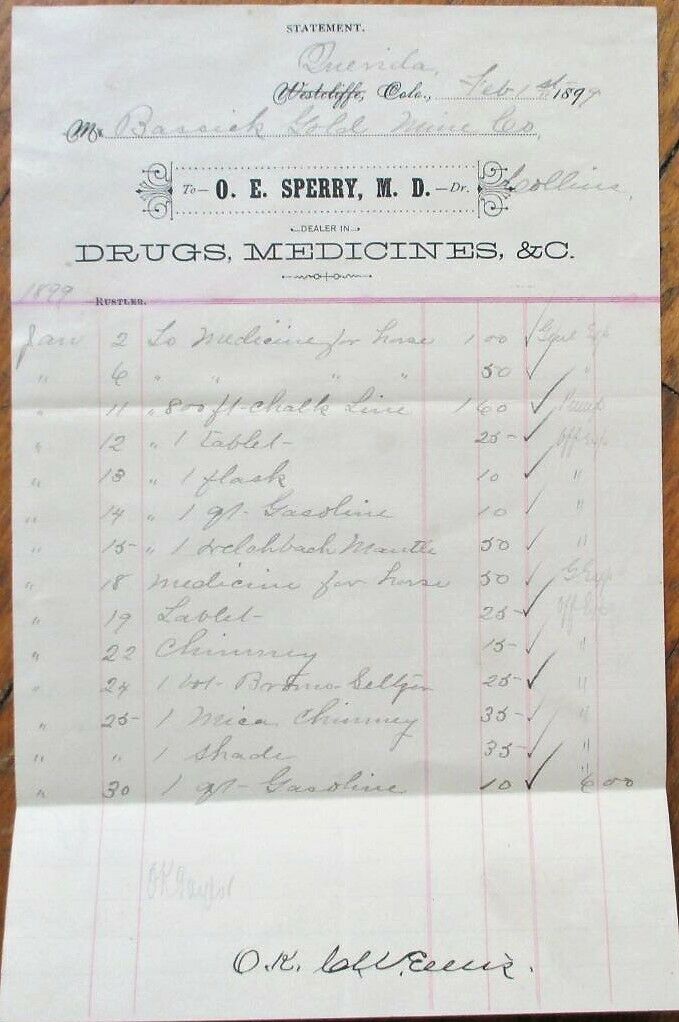 STATEMENT.
Querida,
Westcliffe, Colo., Feb 1st 1899
M Bassick Gold Mine Co,
To— O. E. SPERRY, M. D. —Dr. Collins,
DEALER IN
DRUGS, MEDICINES, &C.
1899 RUSTLER.
Jan 2 To Medicine for horse 1 00 ✓ Genl Exp
" 6 " " " " 50 ✓ "
" 11 " 800 ft chalk Line 1 60 ✓ Pump
" 12 " 1 tablet 25 ✓ Off Exp
" 13 " 1 flask 10 ✓ "
" 14 " 1 qt Gasoline 10 ✓ "
" 15 " 1 Welchbach Mantle 50 ✓ "
" 18 Medicine for horse 50 ✓ G Exp
" 19 Tablet 25 ✓ Off Exp
" 22 Chimney 15 ✓ "
" 24 1 bot Bromo Seltzer 25 ✓ "
" 25 1 Mica Chimney 35 ✓ "
" " 1 Shade 35 ✓ "
" 30 1 qt Gasoline 10 ✓ " 6 00
OK
O.K.